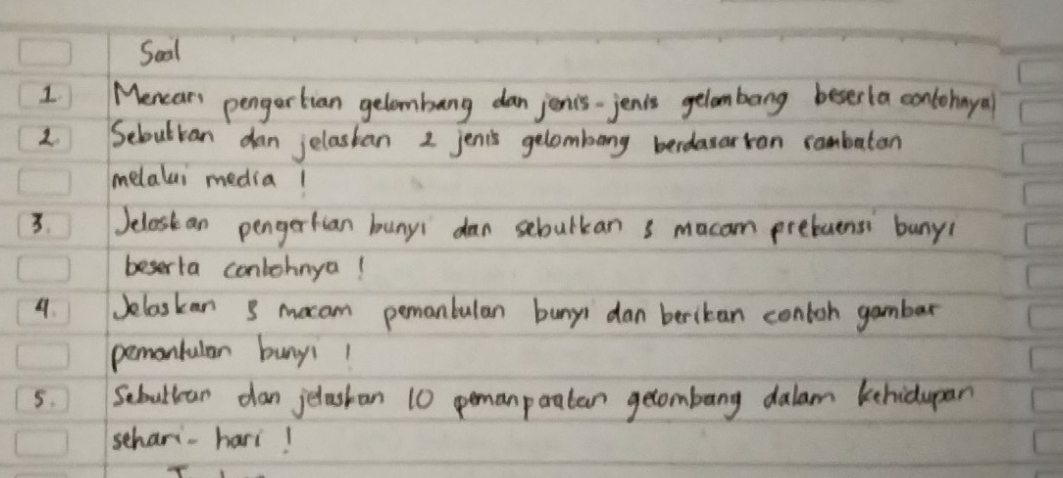 Soal
1. Mencari pengertian gelombang dan jenis-jenis gelombang beserta contohnya)
2. Sebutkan dan jelaskan 2 jenis gelombang berdasarkan rambatan
melalui media !
3. Jelaskan pengertian bunyi dan sebutkan 3 macam prekuensi bunyi
beserta contohnya !
4. Jelaskan 3 macam pemantulan bunyi dan berikan contoh gambar
pemantulan bunyi !
5. Sebutkan dan jelaskan 10 pemanpaatan gelombang dalam kehidupan
sehari-hari !